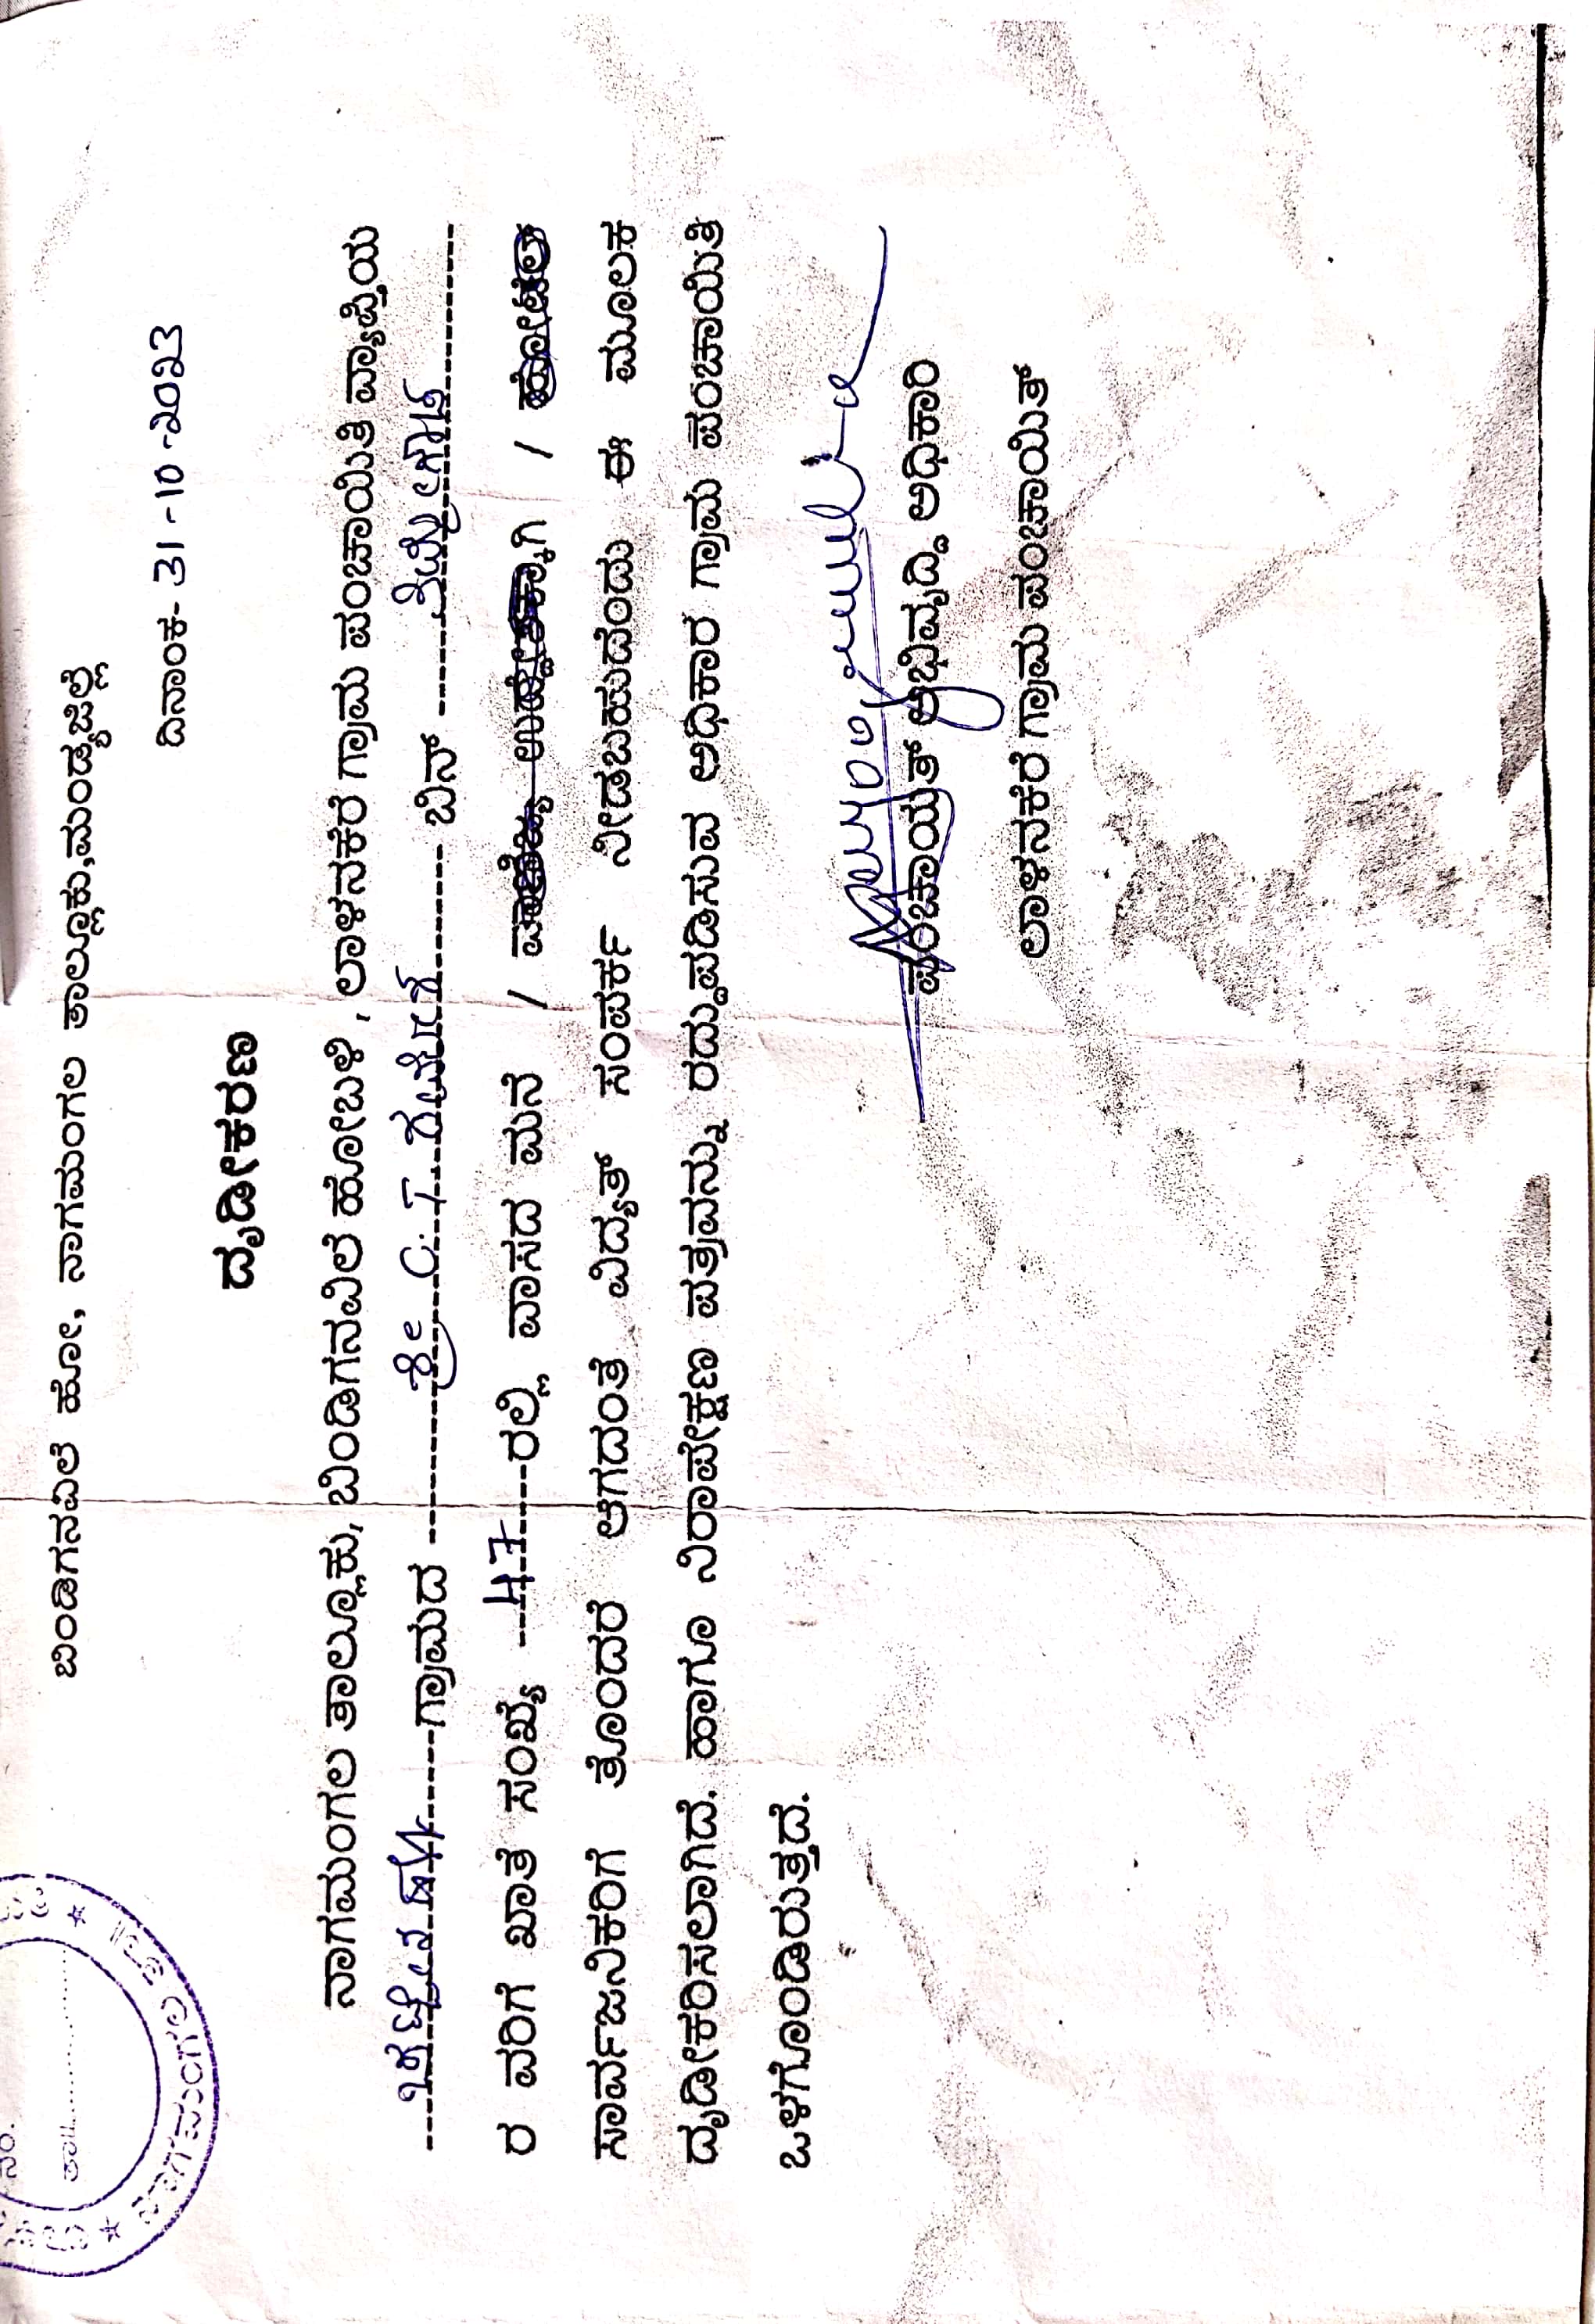 ಬಿಂಡಿಗನವಿಲೆ ಹೋ, ನಾಗಮಂಗಲ ತಾಲ್ಲೂಕು,ಮಂಡ್ಯಜಿಲ್ಲೆ
ದಿನಾಂಕ- 31-10-2023
ದೃಡೀಕರಣ
ನಾಗಮಂಗಲ ತಾಲ್ಲೂಕು, ಬಿಂಡಿಗನವಿಲೆ ಹೋಬಳಿ , ಲಾಳನಕೆರೆ ಗ್ರಾಮ ಪಂಚಾಯಿತಿ ವ್ಯಾಪ್ತಿಯ
ಗ್ರಾಮದ ಶ್ರೀ C.T. ಬಿನ್
ರ ವರಿಗೆ ಖಾತೆ ಸಂಖ್ಯೆ 47 ರಲ್ಲಿ ವಾಸದ ಮನೆ / ವಾಣಿಜ್ಯ ಉದ್ದೇಶಕ್ಕಾಗಿ / ಹೋಟೆಲ್
ಸಾರ್ವಜನಿಕರಿಗೆ ತೊಂದರೆ ಆಗದಂತೆ ವಿದ್ಯತ್ ಸಂಪರ್ಕ ನೀಡಬಹುದೆಂದು ಈ ಮೂಲಕ
ದೃಡೀಕರಿಸಲಾಗಿದೆ. ಹಾಗೂ ನಿರಾಪೇಕ್ಷಣ ಪತ್ರವನ್ನು ರದ್ದುಪಡಿಸುವ ಅಧಿಕಾರ ಗ್ರಾಮ ಪಂಚಾಯಿತಿ
ಒಳಗೊಂಡಿರುತ್ತದೆ.
ಪಂಚಾಯತ್ ಅಭಿವೃದ್ದಿ ಅಧಿಕಾರಿ
ಲಾಳನಕೆರೆ ಗ್ರಾಮ ಪಂಚಾಯಿತ್
ನಂ.
ತಾ॥
ನಾಗಮಂಗಲ